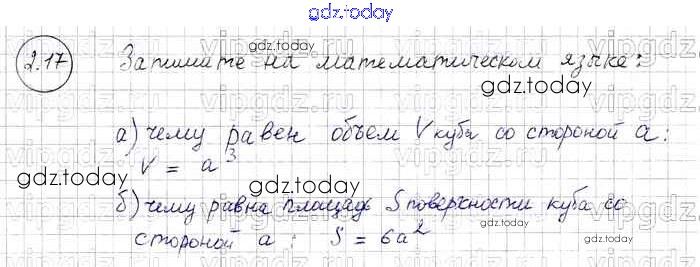 gdz.today
2.17 Запишите на математическом языке:
gdz.today
gdz.today
а) чему равен объем V куба со стороной a:
V = a³
gdz.today
gdz.today
б) чему равна площадь S поверхности куба со
стороной a : S = 6a²
gdz.today